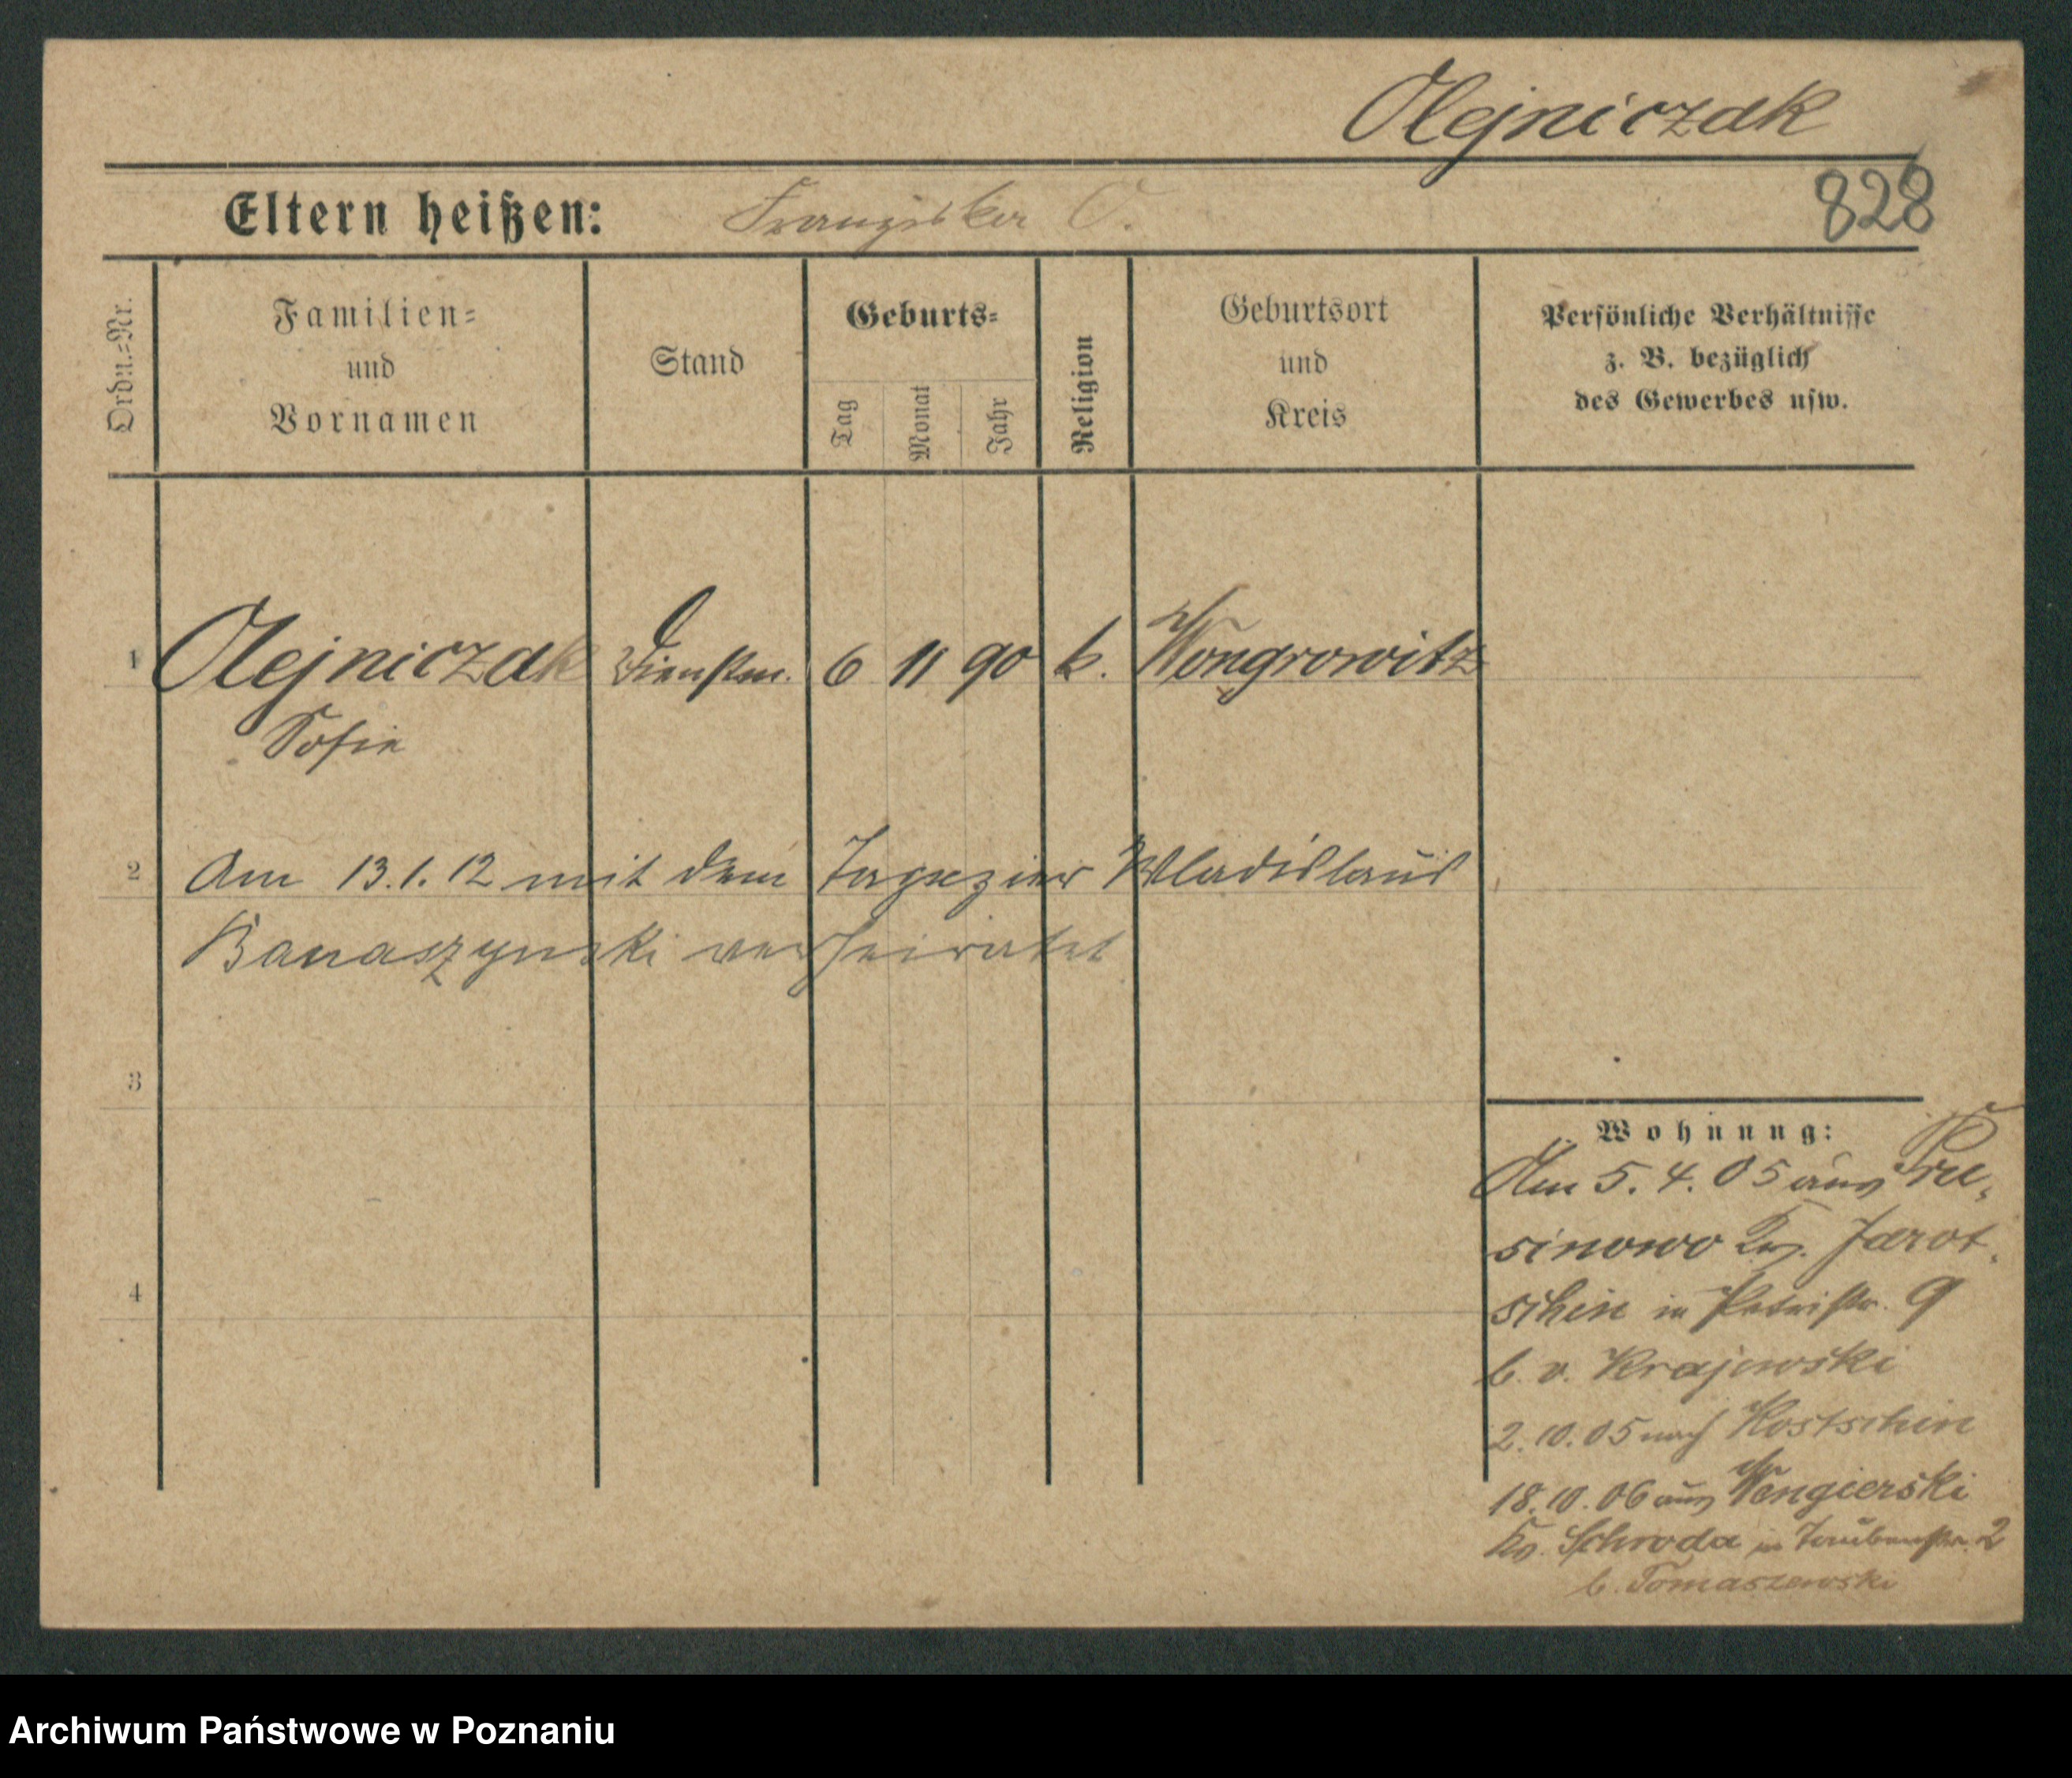 Olejniczak
828
Eltern heißen: Franziska O.
Ordn.=Nr.
Familien=
und
Vornamen
Stand
Geburts=
Tag
Monat
Jahr
Religion
Geburtsort
und
Kreis
Persönliche Verhältnisse
z. B. bezüglich
des Gewerbes usw.
1 Olejniczak Dienstm. 6 11 90 k. Wongrowitz
Sofie
2 Am 13.1.12 mit dem Tapezier Wladislaus
Banaszynski verheiratet
3
4
Wohnung:
Am 5. 4. 05 aus
sinowo Kr. Jarot
schin in Petristr. 9
b. v. Krajewski
2. 10. 05 nach Kostschin
18. 10. 06 aus Wengierski
Kr. Schroda in Taubenstr. 2
b. Tomaszewski
Archiwum Państwowe w Poznaniu